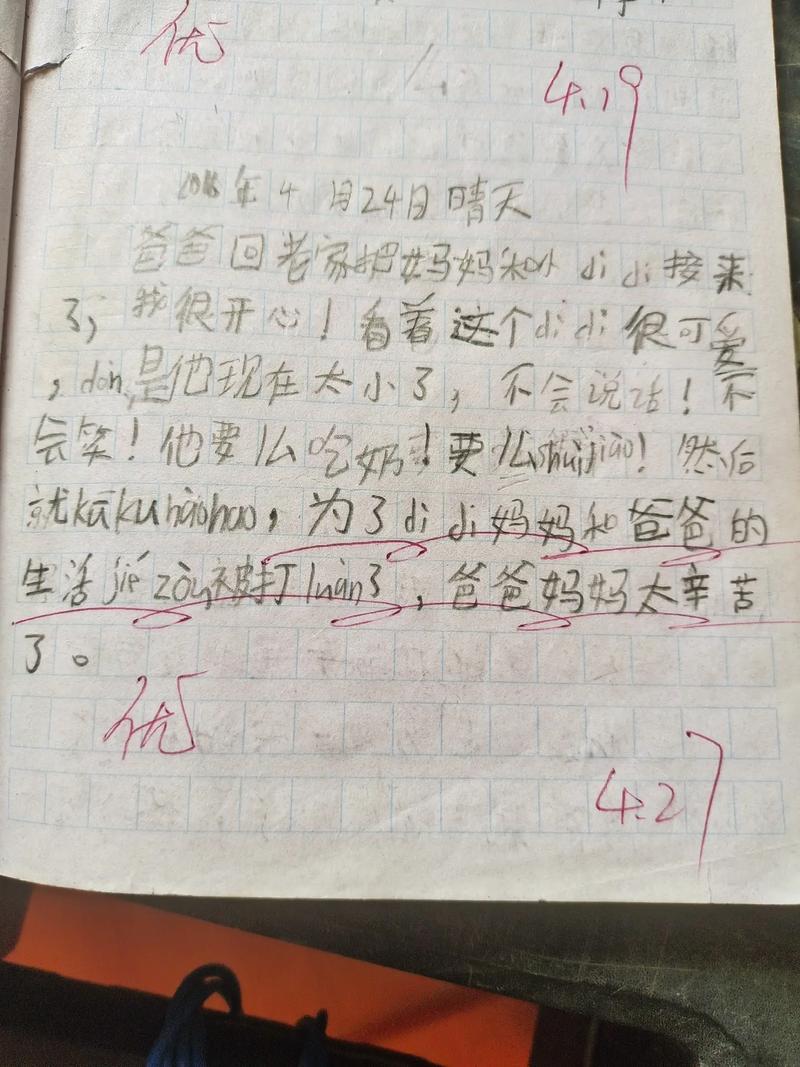 优
4.19
2016年4月24日 晴天
爸爸回老家把妈妈和小didi接来
了，我很开心！看着这个didi很可爱
，dàn是他现在太小了，不会说话！不
会笑！他要么吃奶！要么shuìjiào！然后
就kūkuhàohao，为了didi妈妈和爸爸的
生活jié zòu被打luàn了，爸爸妈妈太辛苦
了。
优
4.27